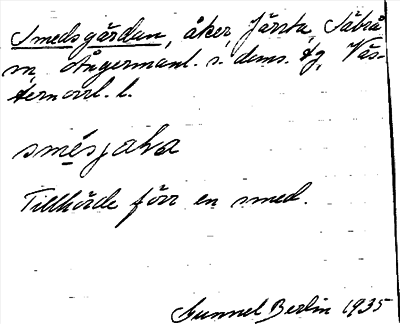 Smedsgården, åker, Järsta, Säbrå
sn, Ångermanl. s. doms. tg, Väs-
ternorrl. l.
smèsjaḷa
Tillhörde förr en smed.
Gunnel Berlin 1935